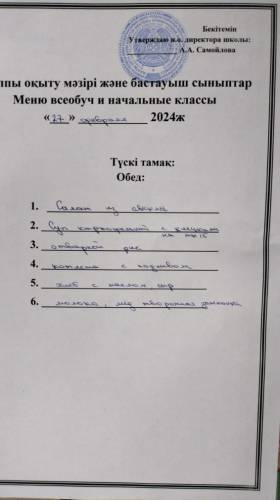 Бекітемін
Утверждаю и.о. директора школы:
А.А. Самойлова
лпы оқыту мәзірі және бастауыш сыныптар
Меню всеобуч и начальные классы
«27» февраля 2024ж
Түскі тамақ:
Обед:
1. Салат из свекла
2. Суп картофельный с клецками
3. отварной рис
4. котлета с подливом
5. хлеб с маслом сыр
6. молоко, мед творожная